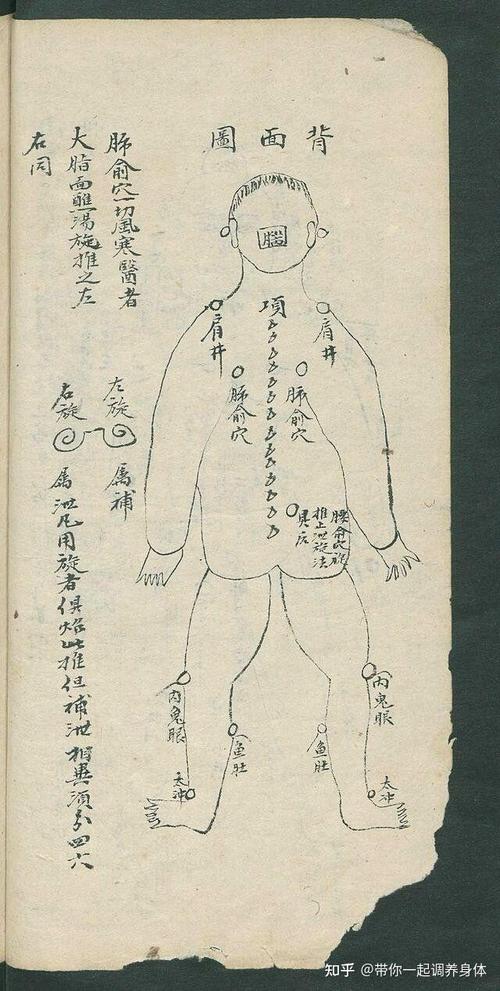 背面圖
腦
項
肩井
肩井
肺俞穴
肺俞穴
腰俞穴旋
推上泄旋法
内鬼眼
内鬼眼
鱼肚
鱼肚
太冲
太冲
肺俞穴一切風寒醫者
大脂面醮湯旋推之左
右同
左旋
属補
右旋
属泄凡用旋者俱炤此推但補泄相異須分四六
知乎 @带你一起调养身体